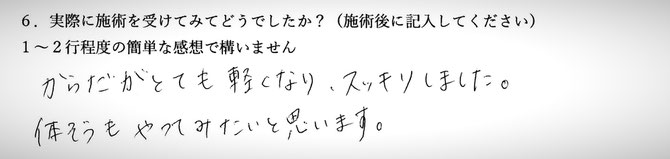 6．実際に施術を受けてみてどうでしたか？（施術後に記入してください）
1～2行程度の簡単な感想で構いません
からだがとても軽くなり、スッキリしました。
体そうもやってみたいと思います。